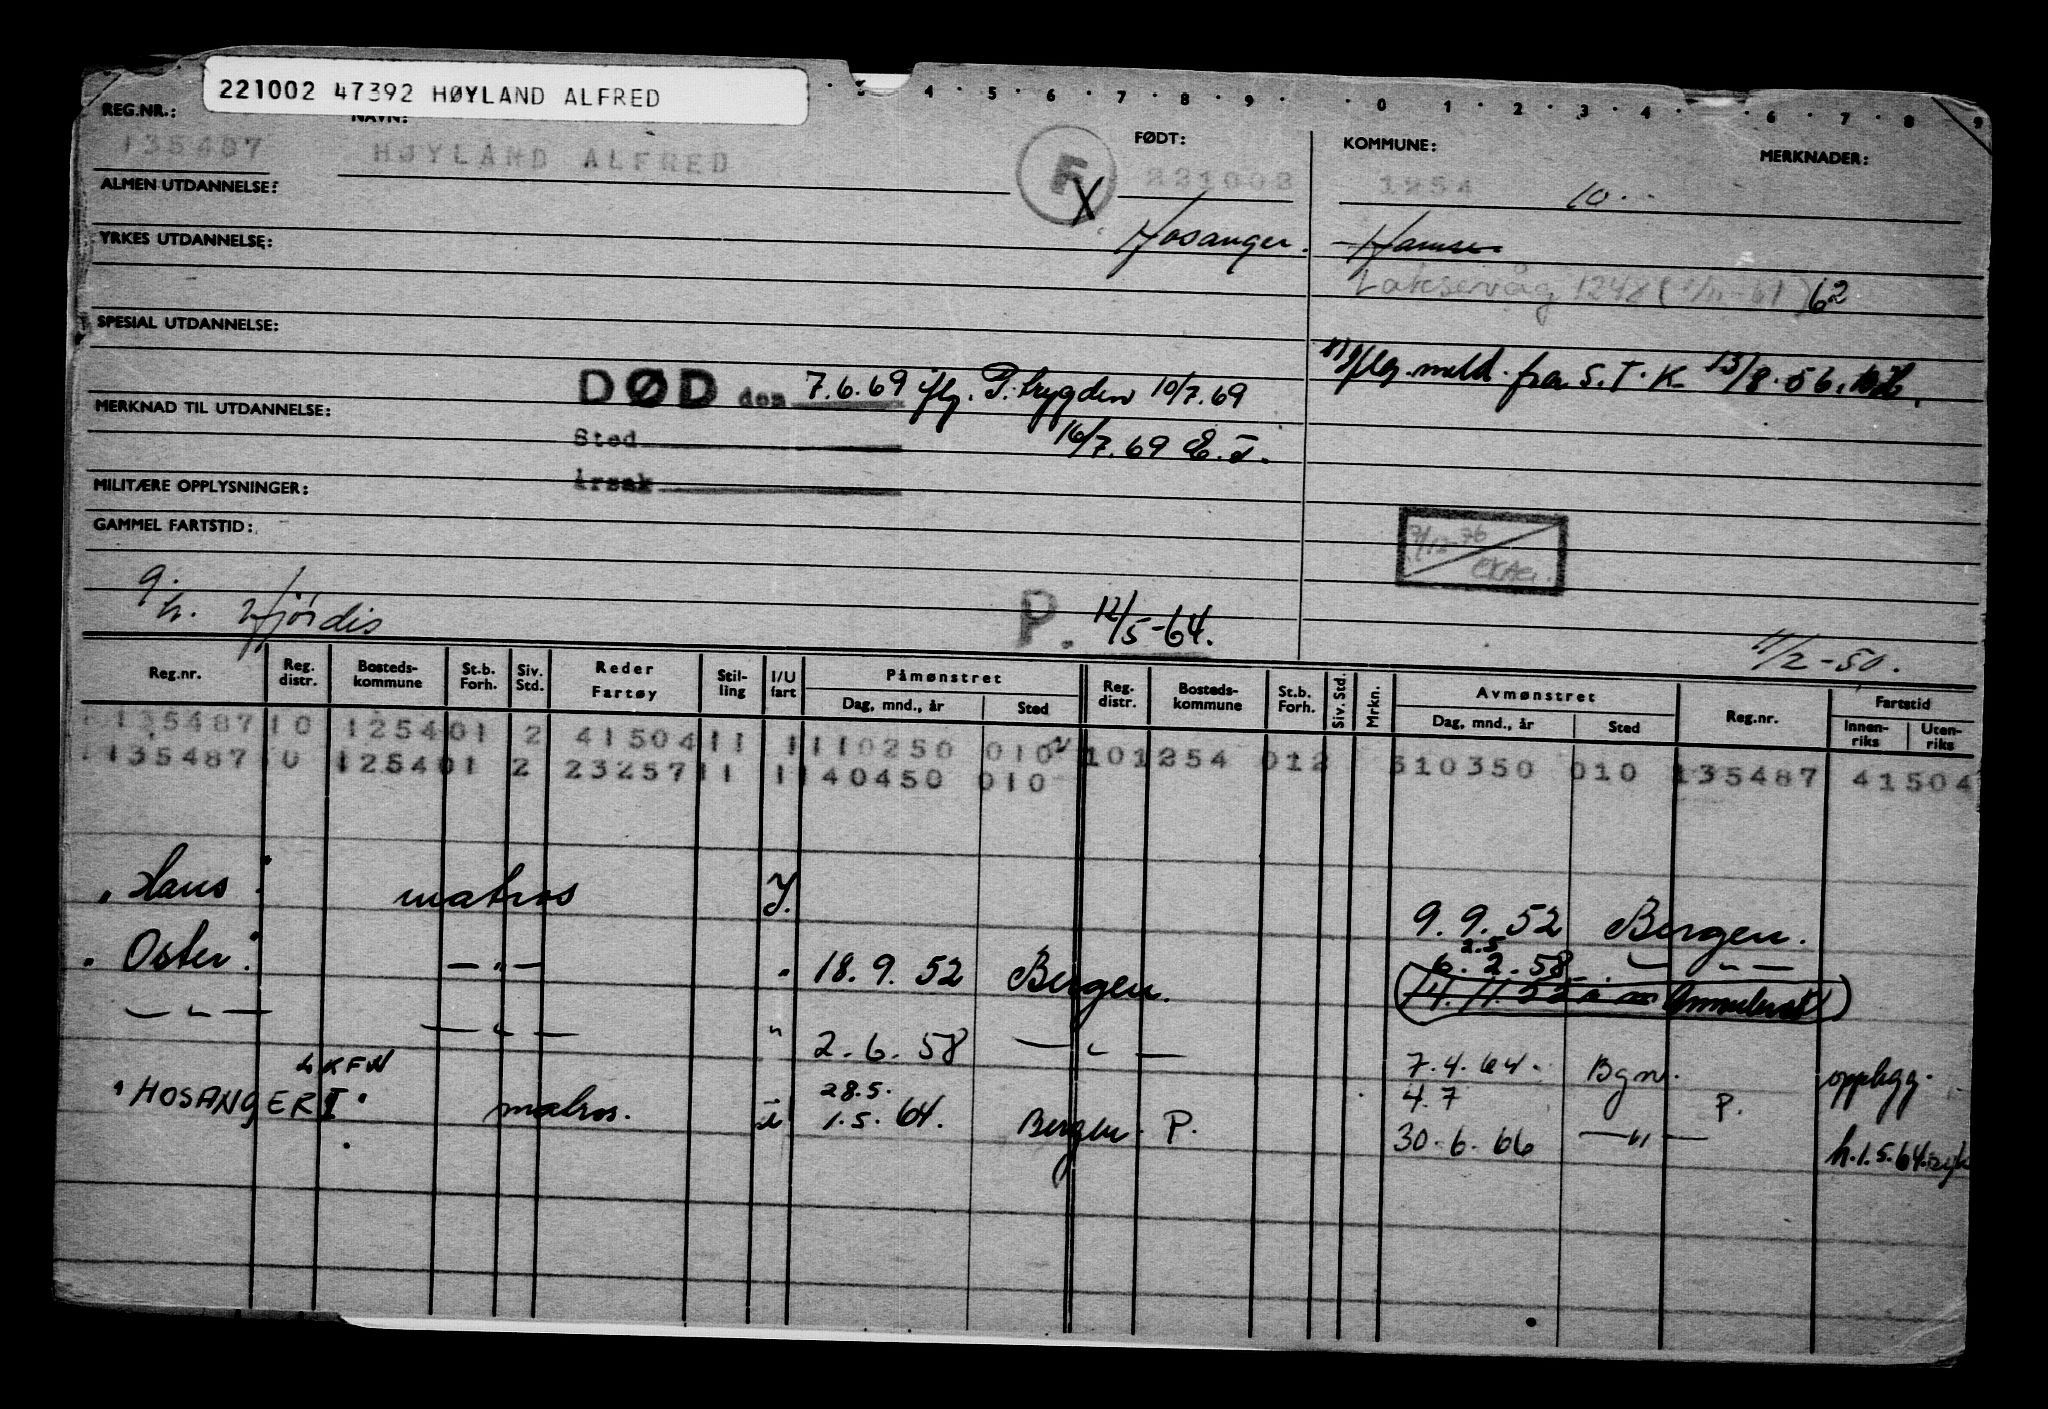 221002 47392 HØYLAND ALFRED
3 · 4 · 5 · 6 · 7 · 8 · 9 · · 0 · 1 · 2 · 3 · 4 · 6 · 7 · 8 · 9
REG.NR.: NAVN: FØDT: KOMMUNE: MERKNADER:
135487 HØYLAND ALFRED F X 221002 1254 10
ALMEN UTDANNELSE:
Hosanger.
YRKES UTDANNELSE:
Laksevåg 1248 ( -61) 62
SPESIAL UTDANNELSE:
iflg. meld. fra S.T.K 13/8.56.
DØD den 7.6.69 iflg. P. trygden 10/7.69
MERKNAD TIL UTDANNELSE:
Sted 16/7.69
MILITÆRE OPPLYSNINGER:
Årsak
GAMMEL FARTSTID:
7/12-76
g. h. Hjördis P. 12/5-64.
11/2-50.
Reg.nr. Reg. distr. Bosteds-kommune St.b. Forh. Siv. Std. Reder Fartøy Stil-ling I/U fart Påmønstret Reg. distr. Bosteds-kommune St.b. Forh. Siv. Std. Mrkn. Avmønstret Reg.nr. Fartstid
Dag, mnd., år Sted Dag, mnd., år Sted Innen-riks Uten-riks
135487 10 1254 01 2 41504 11 1 110250 010 10 1254 012 310350 010 135487 41504
135487 10 1254 01 2 23257 11 1 140450 010
"Haus" matros I. 9.9.52 Bergen.
"Oster" — " — " 18.9.52 Bergen. 2.5 6.2.58 — " —
(14.11.52 Annulert)
— " — — " — " 2.6.58 — " — 7.4.64. Bgn. opplegg.
LKFN
"HOSANGER I" matros. 28.5. 1.5.64. Bergen. P. 4.7 30.6.66 — " — P. h.1.5.64.